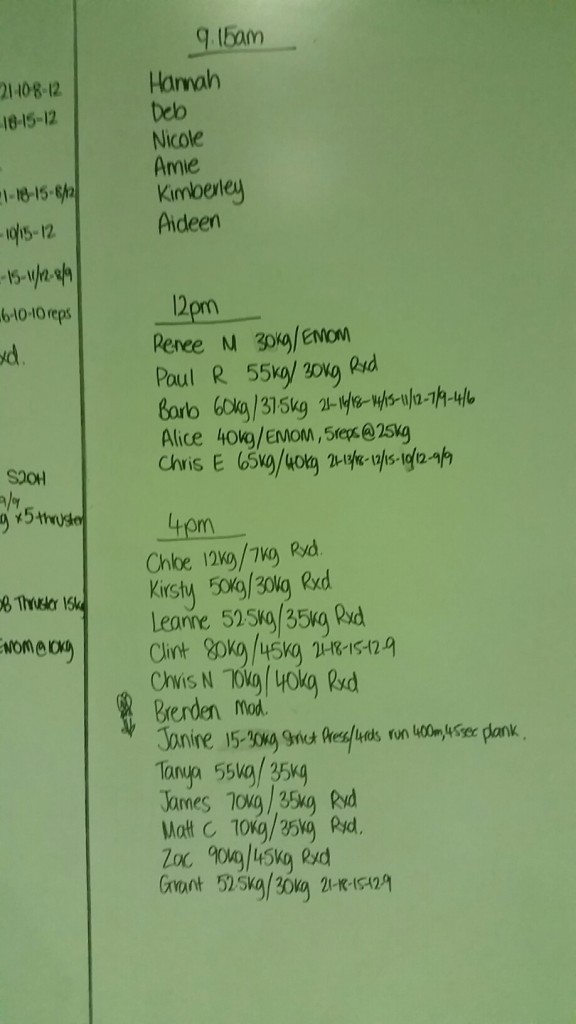 21-10-8-12
-18-15-12
1-18-15-8/12
-10/15-12
-15-11/12-8/9
6-10-10 reps
xd.
S2OH
9/9
g x5 thruster
DB Thruster 15kg
EMOM @ 10kg
9.15am
Hannah
Deb
Nicole
Amie
Kimberley
Aideen
12pm
Renee M 30kg/EMOM
Paul R 55kg/30kg Rxd
Barb 60kg/37.5kg 21-16/18-14/15-11/12-7/9-4/6
Alice 40kg/EMOM, 5reps@25kg
Chris E 65kg/40kg 21-13/18-12/15-10/12-9/9
4pm
Chloe 12kg/7kg Rxd.
Kirsty 50kg/30kg Rxd
Leanne 52.5kg/35kg Rxd
Clint 80kg/45kg 21-18-15-12-9
Chris N 70kg/40kg Rxd
Brenden Mod.
Janine 15-30kg Strict Press/4rds run 400m, 45sec plank.
Tanya 55kg/35kg
James 70kg/35kg Rxd
Matt C 70kg/35kg Rxd.
Zac 90kg/45kg Rxd
Grant 52.5kg/30kg 21-18-15-12-9